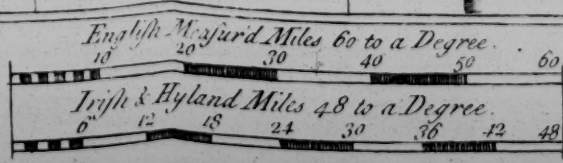 English Measur'd Miles 60 to a Degree.
10 20 30 40 50 60
Irish & Hyland Miles 48 to a Degree.
6 12 18 24 30 36 42 48